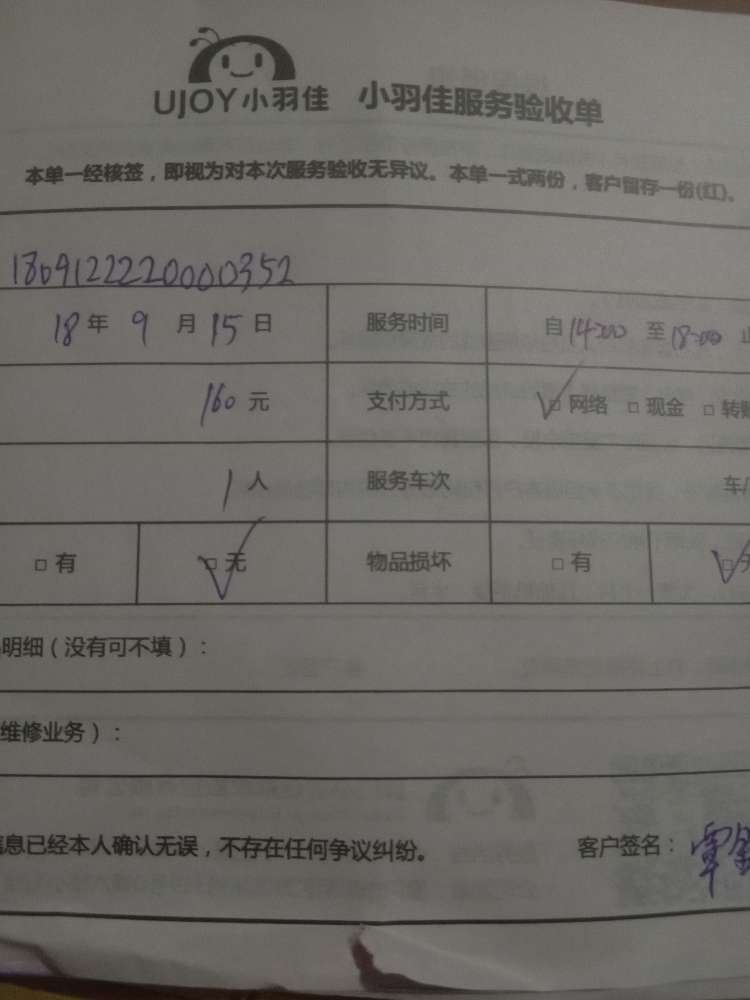 UJOY小羽佳 小羽佳服务验收单
本单一经核签，即视为对本次服务验收无异议。本单一式两份，客户留存一份(红)。
1809122220000352
18年 9月 15日 服务时间 自14:00 至18:00 止
160元 支付方式 □网络 □现金 □转账
1人 服务车次 车/
□有 □无 物品损坏 □有 □无
明细（没有可不填）：
维修业务）：
信息已经本人确认无误，不存在任何争议纠纷。 客户签名：覃